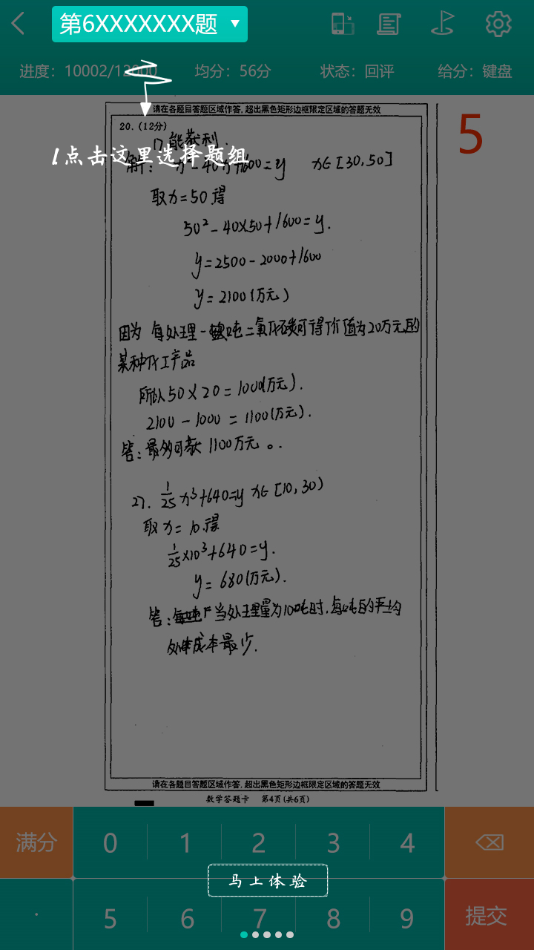 第6XXXXXXX题
进度：10002/12000 均分：56分 状态：回评 给分：键盘
请在各题目答题区域作答，超出黑色矩形边框限定区域的答题无效
5
20.(12分)
能获利.
1点击这里选择题组
解： x²-40x+1600=y x∈[30,50]
取x=50得
50²-40×50+1600=y.
y=2500-2000+1600
y=2100(万元)
因为 每处理一吨二氧化碳可得价值为20万元的
某种化工产品
所以50×20=1000(万元).
2100-1000=1100(万元).
答：最多可获1100万元。
27. 1/25 x³+640=y x∈[10,30)
取x=10得
1/25×10³+640=y.
y=680(万元).
答： 当处理量为10吨时,每吨的平均
处理成本最少.
请在各题目答题区域作答，超出黑色矩形边框限定区域的答题无效
数学答题卡 第4页(共6页)
满分 0 1 2 3 4
马上体验
. 5 6 7 8 9 提交